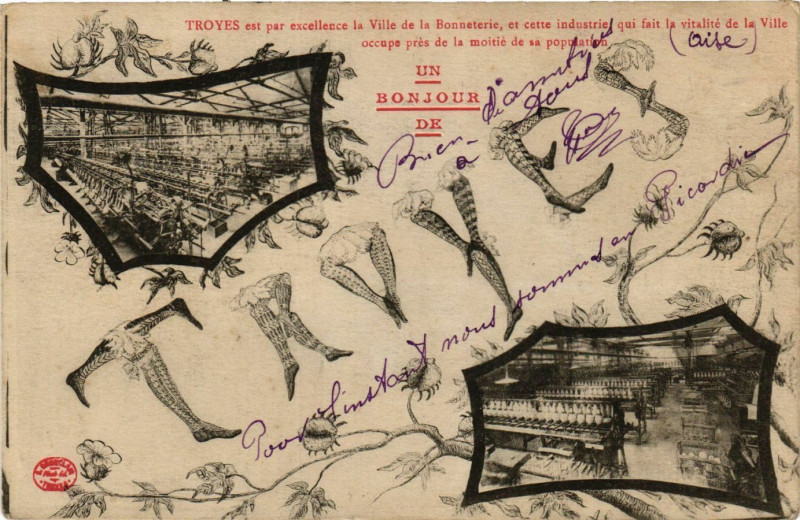 TROYES est par excellence la Ville de la Bonneterie, et cette industrie, qui fait la vitalité de la Ville
occupe près de la moitié de sa population
(Aise)
UN
BONJOUR
DE
TROYES
Bien d'amitiés
à tous
Pour l'instant nous sommes en Picardie